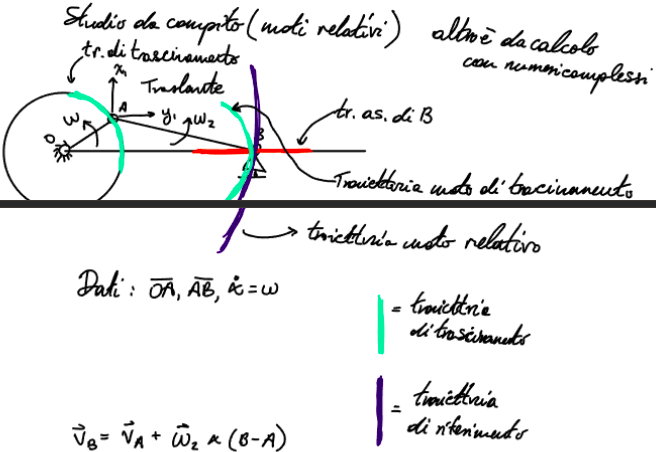 Studio da compito (moti relativi)
altro è da calcolo
con numeri complessi
tr. di trascinamento
x₁
A
Traslante
y₁
ω₂
ω
O
B
tr. as. di B
Traiettoria moto di trascinamento
traiettoria moto relativo
Dati: OA, AB, α̇ = ω
= traiettria
di trascinamento
= traiettria
di riferimento
v⃗_B = v⃗_A + ω⃗₂ ∧ (B-A)